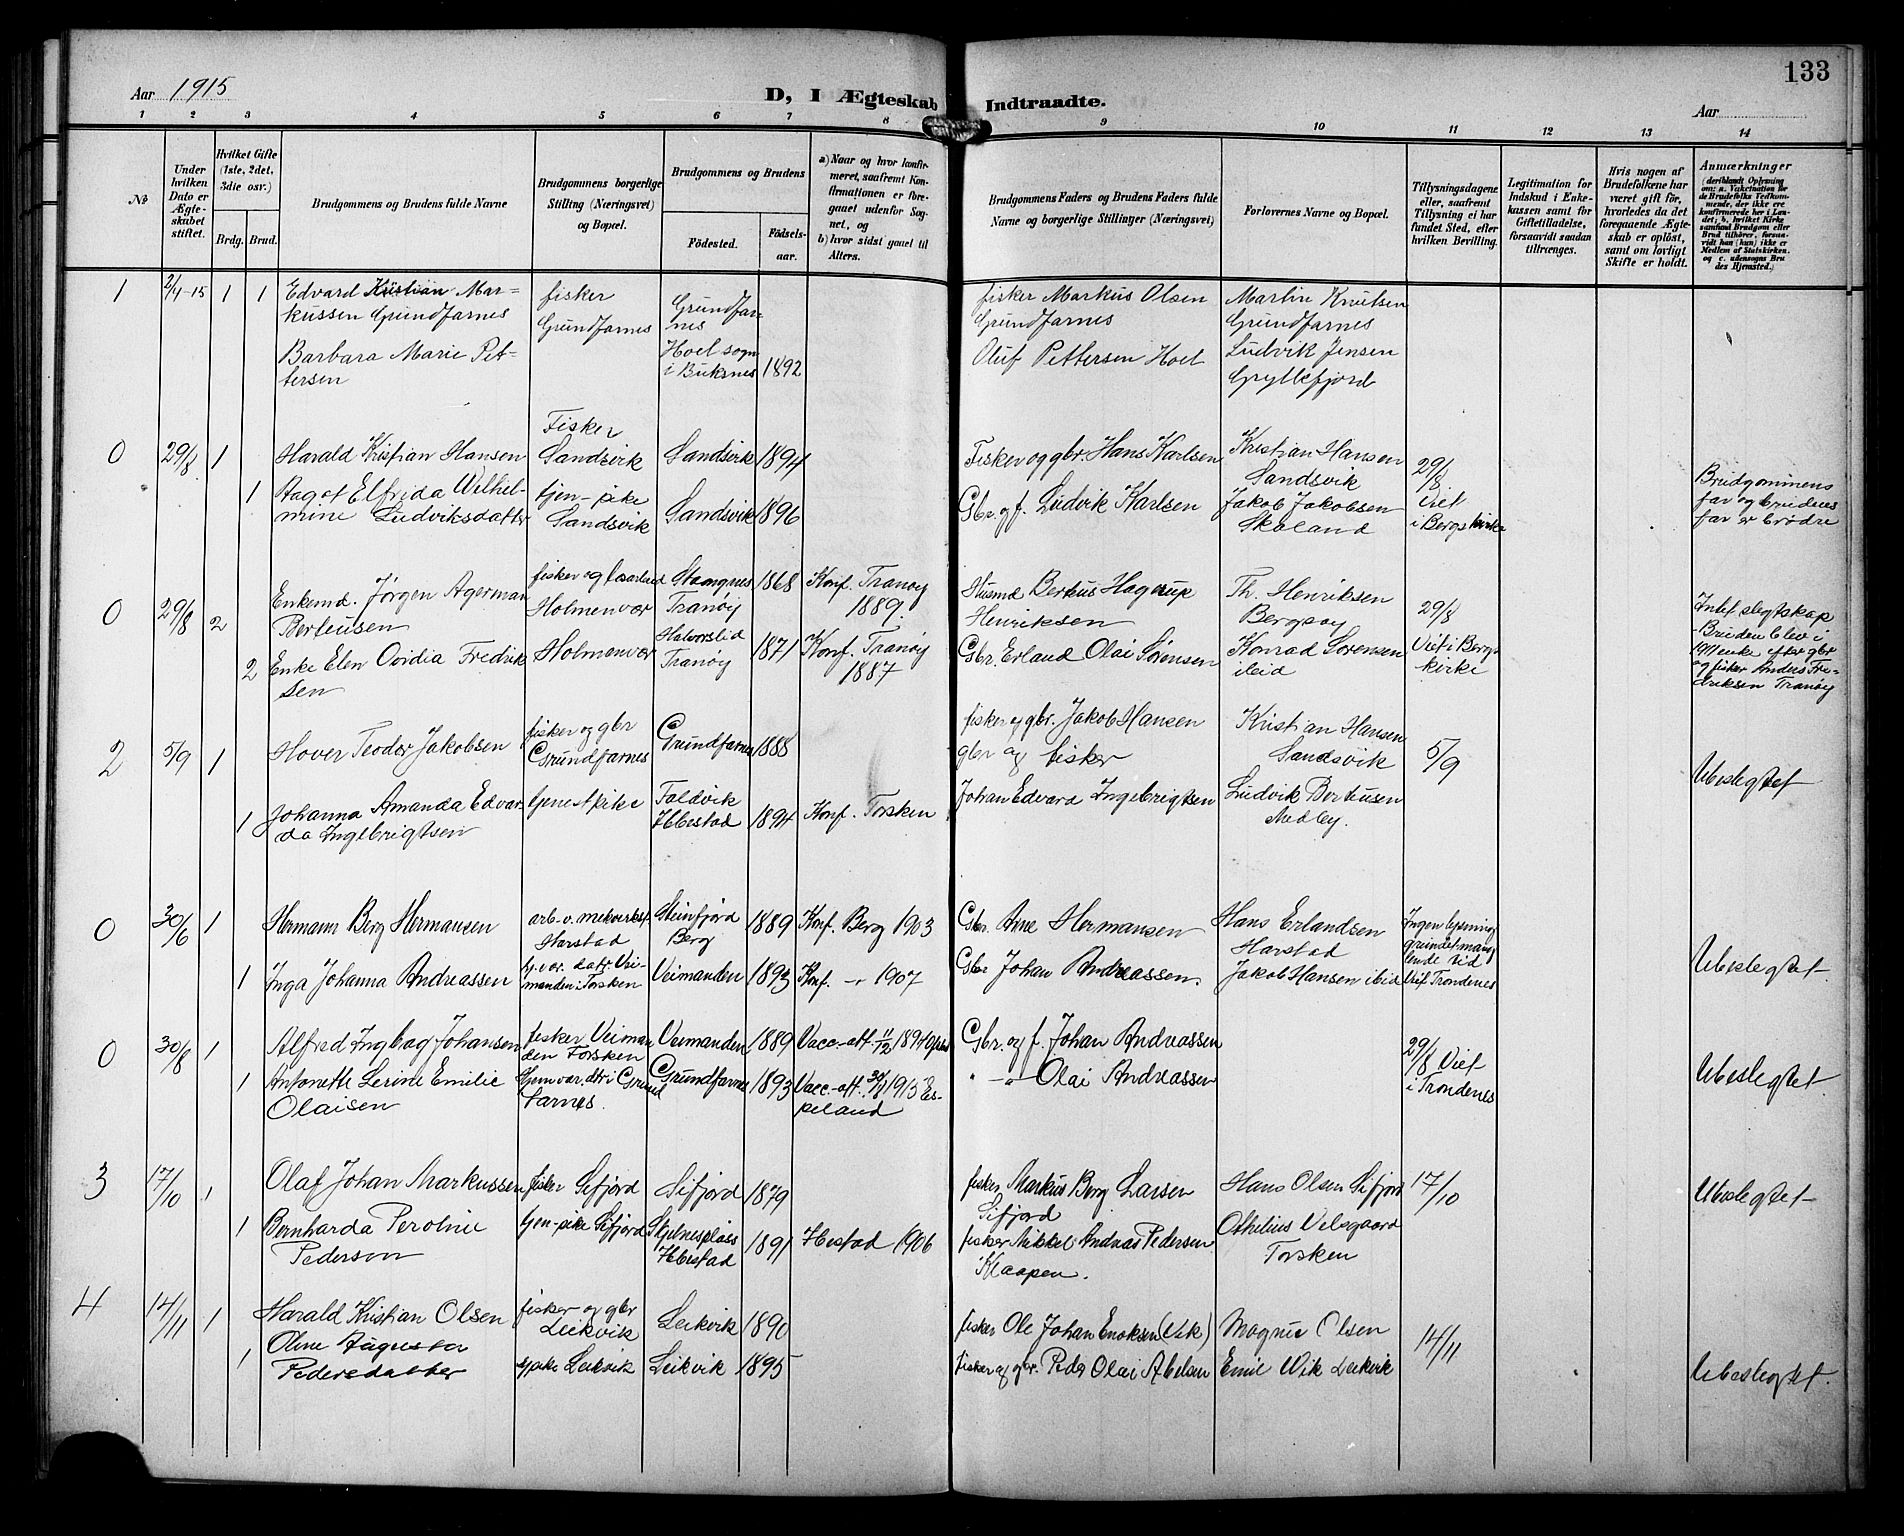 133
Aar 1915
D, I Ægteskab Indtraadte.
Aar
1 2 3 4 5 6 7 8 9 10 11 12 13 14
№
Under hvilken Dato er Ægteskabet stiftet.
Hvilket Gifte (1ste, 2det, 3die osv.)
Brdg. Brud.
Brudgommens og Brudens fulde Navne
Brudgommens borgerlige Stilling (Næringsvei) og Bopæl.
Brudgommens og Brudens
Fødested.
Fødselsaar.
a) Naar og hvor konfirmeret, saafremt Konfirmationen er foregaaet udenfor Sognet, og
b) hvor sidst gaaet til Alters.
Brudgommens Faders og Brudens Faders fulde Navne og borgerlige Stillinger (Næringsvei)
Forlovernes Navne og Bopæl.
Tillysningsdagene eller, saafremt Tillysning ei har fundet Sted, efter hvilken Bevilling.
Legitimation for Indskud i Enkekassen samt for Giftetilladelse, forsaavidt saadan tiltrænges.
Hvis nogen af Brudefolkene har været gift før, hvorledes da det foregaaende Ægteskab er opløst, samt om lovligt Skifte er holdt.
Anmærkninger
(deriblandt Oplysning om: a. Vakcination for de Brudefolks Vedkommende, der ikke ere konfirmerede her i Landet; b. hvilket Kirkesamfund Brudgom eller Brud tilhører, forsaavidt han (hun) ikke er Medlem af Statskirken, og c. udensogns Brudes Hjemsted.)
1 2/4-15 1 1 Edvard Kristian Mar-
kussen Grundfarnes
fisker
Grundfarnes
Grundfar-
nes
fisker Markus Olsen
Grundfarnes
Martin Knutsen
Grundfarnes
Barbara Marie Pet-
tersen
Hoel sogn
i Buksnes 1892
Oluf Pettersen Hoel
Ludvik Jensen
Gryllefjord
0 29/8 1 Harald Kristian Hansen
Fisker
Sandsvik
Sandsvik 1894
Fisker og gbr. Hans Karlsen
Kristian Hansen
Sandsvik
29/8
Viet
i Bergs kirke
1 Aagot Elfrida Wilhel-
mine Ludviksdatter
tjen-pike
Sandsvik
Sandsvik 1896
Gbr. og f. Ludvik Karlsen
Jakob Jakobsen
Skaland
Brudgommens
far og brudens
far er brødre
0 29/8 2 Enkemd. Jørgen Agerman
Berteusen
Holmenvær
Tranøy 1868 Konf. Tranøy
1889.
Husmd Berteus Hagerup
Henriksen
Th. Henriksen
Bergsøy
29/8
Viet i Bergs
kirke
2 Enke Elen Ovidia Fredrik
sen
Holmenvær
Halvorslid
Tranøy 1871 Konf. Tranøy
1887
Gbr. Erland Olai Sørensen
Konrad Sørensen
ibid
Intet slegtskap
Bruden blev i
1911 enke efter gbr
og fisker Anders Fre-
driksen Tranøy
2 5/9 1 Hover Teodor Jakobsen
fisker og gbr
Grundfarnes
Grundfarnes 1888
fisker og gbr. Jakob Hansen
Kristian Hansen
Sandsvik
5/9
1 Johanna Amanda Edvar
da Ingebrigtsen
tjenestpike
Foldvik
Ibbestad 1894 Konf. Torsken
gbr og fisker
Johan Edvard Ingebrigtsen
Ludvik Berteusen
Medby.
Ubeslegtet
0 30/6 1 Hermann Berg Hermansen
arb. v. mekverkst.
Harstad
Steinfjord
Berg 1889 Konf. Berg 1903
Gbr. Arne Hermansen
Hans Erlandsen
Harstad
Ingen lysning
grundet mang-
lende tid
Viet Trondenes
1 Inga Johanna Andreassen
tj.v.sr. datr. Vei-
manden i Torsken
Veimanden 1893 Konf. -"- 1907
Gbr Johan Andreassen.
Jakob Hansen ibid
Ubeslegtet
0 30/8 1 Alfred Ingbag Johansen
fisker Veiman
den Torsken
Veimanden 1889
Gbr. og f. Johan Andreassen
29/8 Viet
i Trondenes
1 Antonette Serine Emilie
Olaisen
Grundfarnes 1893
" -"- Olai Andreassen
Ubeslegtet
3 17/10 1 Olaf Johan Markussen
fisker Sifjord
Sifjord 1879
fisker Markus Berg Larsen
Sifjord
Hans Olsen Sifjord
17/10
Ubeslegtet
1 Bernharda Peroline
Pederson
tjen-pike Sifjord
Ibbestad 1891 Ibestad 1906
fisker Mikkel Andreas Pedersen
Klaapen.
Othelius Velsgaard
Torsken
4 14/11 1 Harald Kristian Olsen
fisker og gbr
Leikvik
Leikvik 1890
fisker Ole Johan Enoksen (Vik)
Magnus Olsen
14/11
1 Oline Augusta
Pedersdatter
tjpike Leikvik
Leikvik 1895
fisker og gbr. Peder Olai Abelsen
Emil Wik Leikvik
Ubeslegtet.